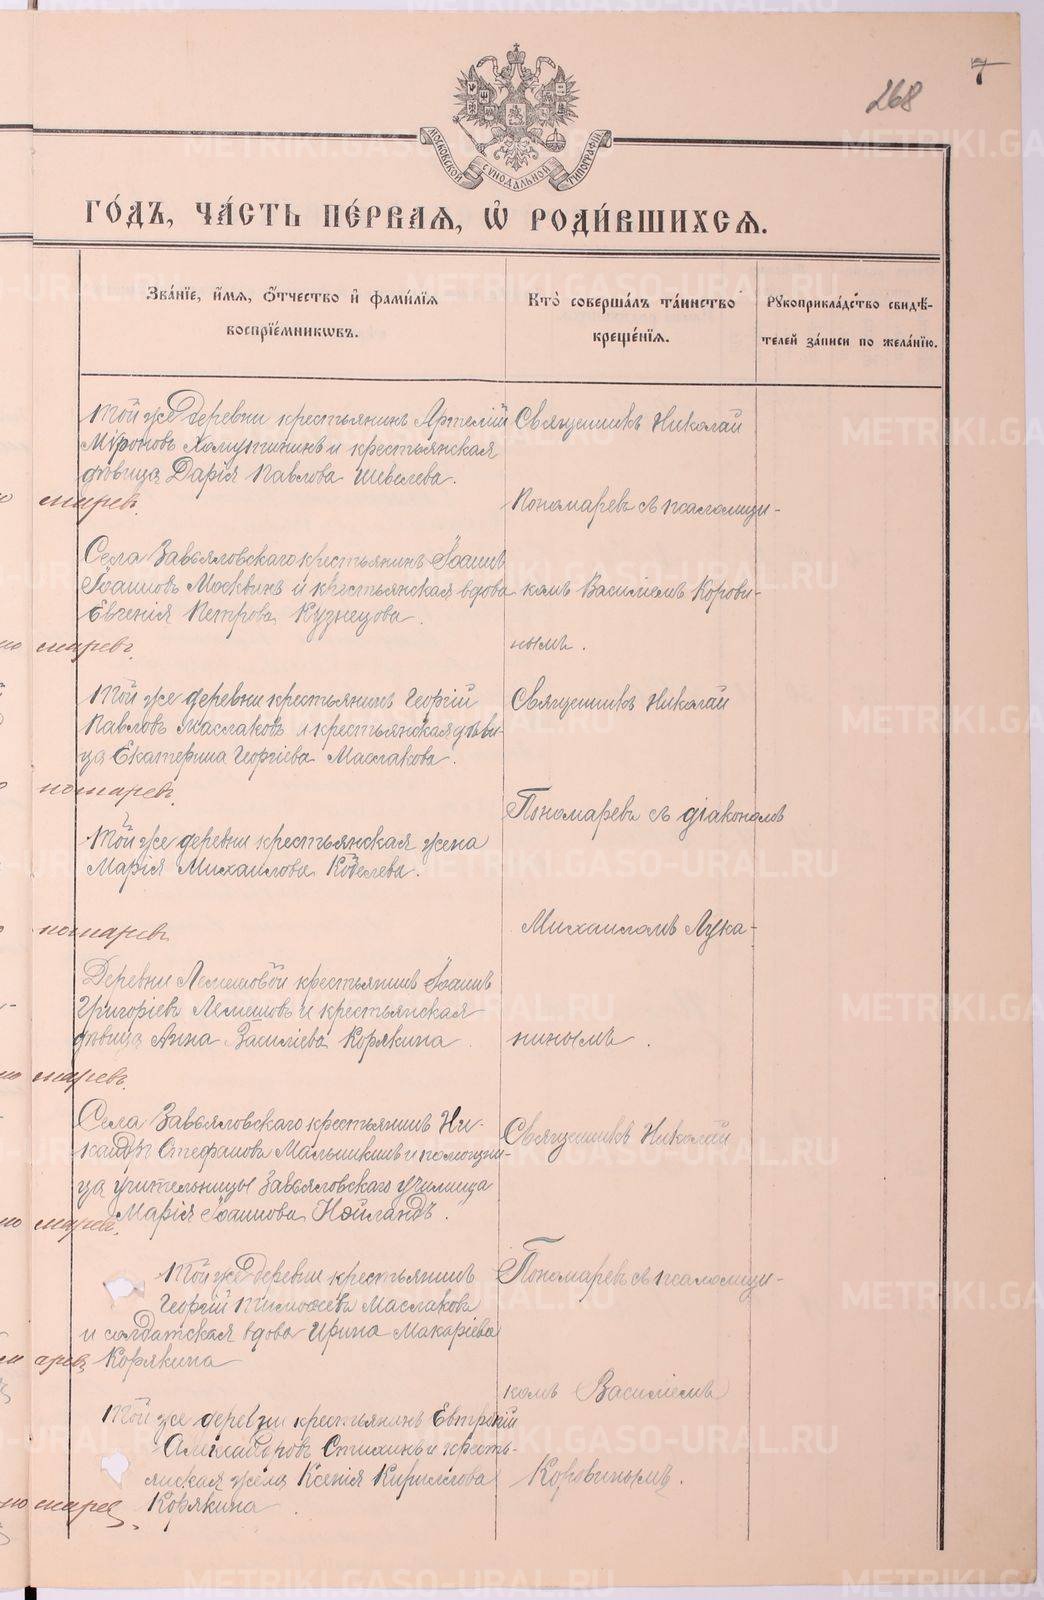 268
7
МОСКОВСКОЙ СѴНОДАЛЬНОЙ ТИПОГРАФІИ
ГО́ДЪ, ЧА́СТЬ ПЕ́РВАЯ, Ѽ РОДИ́ВШИХСѦ.
Зва́нїе, и҆́мѧ, ѻ҆́тчество и҆ фами́лїѧ
воспрїе́мникѡвъ.
Кто̀ соверша́лъ та́инство
креще́нїѧ.
Рꙋкоприкла́дство свидѣ́-
телей за́писи по жела́нїю.
Той же деревни крестьянинъ Артемій
Мѵроновъ Хомутининъ и крестьянская
дѣвица Дарія Павлова Шевелева.
Священникъ Николай
Пономаревъ съ псаломщи-
комъ Василіемъ Корови-
нымъ.
номарев.
Села Завьяловскаго крестьянинъ Іоаннъ
Іоанновъ Москвинъ и крестьянская вдова
Евгенія Петрова Кузнецова.
номаревъ.
Той же деревни крестьянинъ Георгій
Павловъ Маслаковъ и крестьянская дѣви-
ца Екатерина Георгіева Маслакова.
Священникъ Николай
Пономаревъ съ діакономъ
Михаиломъ Лука-
нинымъ.
номаревъ.
Той же деревни крестьянская жена
Марія Михаилова Кобелева.
номаревъ
Деревни Лемешовой крестьянинъ Іоаннъ
Григоріевъ Лемешовъ и крестьянская
дѣвица Анна Василіева Корякина.
номаревъ.
Села Завьяловскаго крестьянинъ Ни-
кандръ Стефановъ Малышкинъ и помощни-
ца учительницы Завьяловскаго училища
Марія Іоаннова Нейландъ.
Священникъ Николай
Пономаревъ съ псаломщи-
комъ Василіемъ
Коровинымъ.
номарев.
Той же деревни крестьянинъ
Георгій Тимоѳеевъ Маслаковъ
и солдатская вдова Ирина Макаріева
Корякина
Той же деревни крестьянинъ
Александровъ Стихинъ и кресть-
янская жена Ксенія Кириллова
Корякина.
номарев.
METRIKI.GASO-URAL.RU